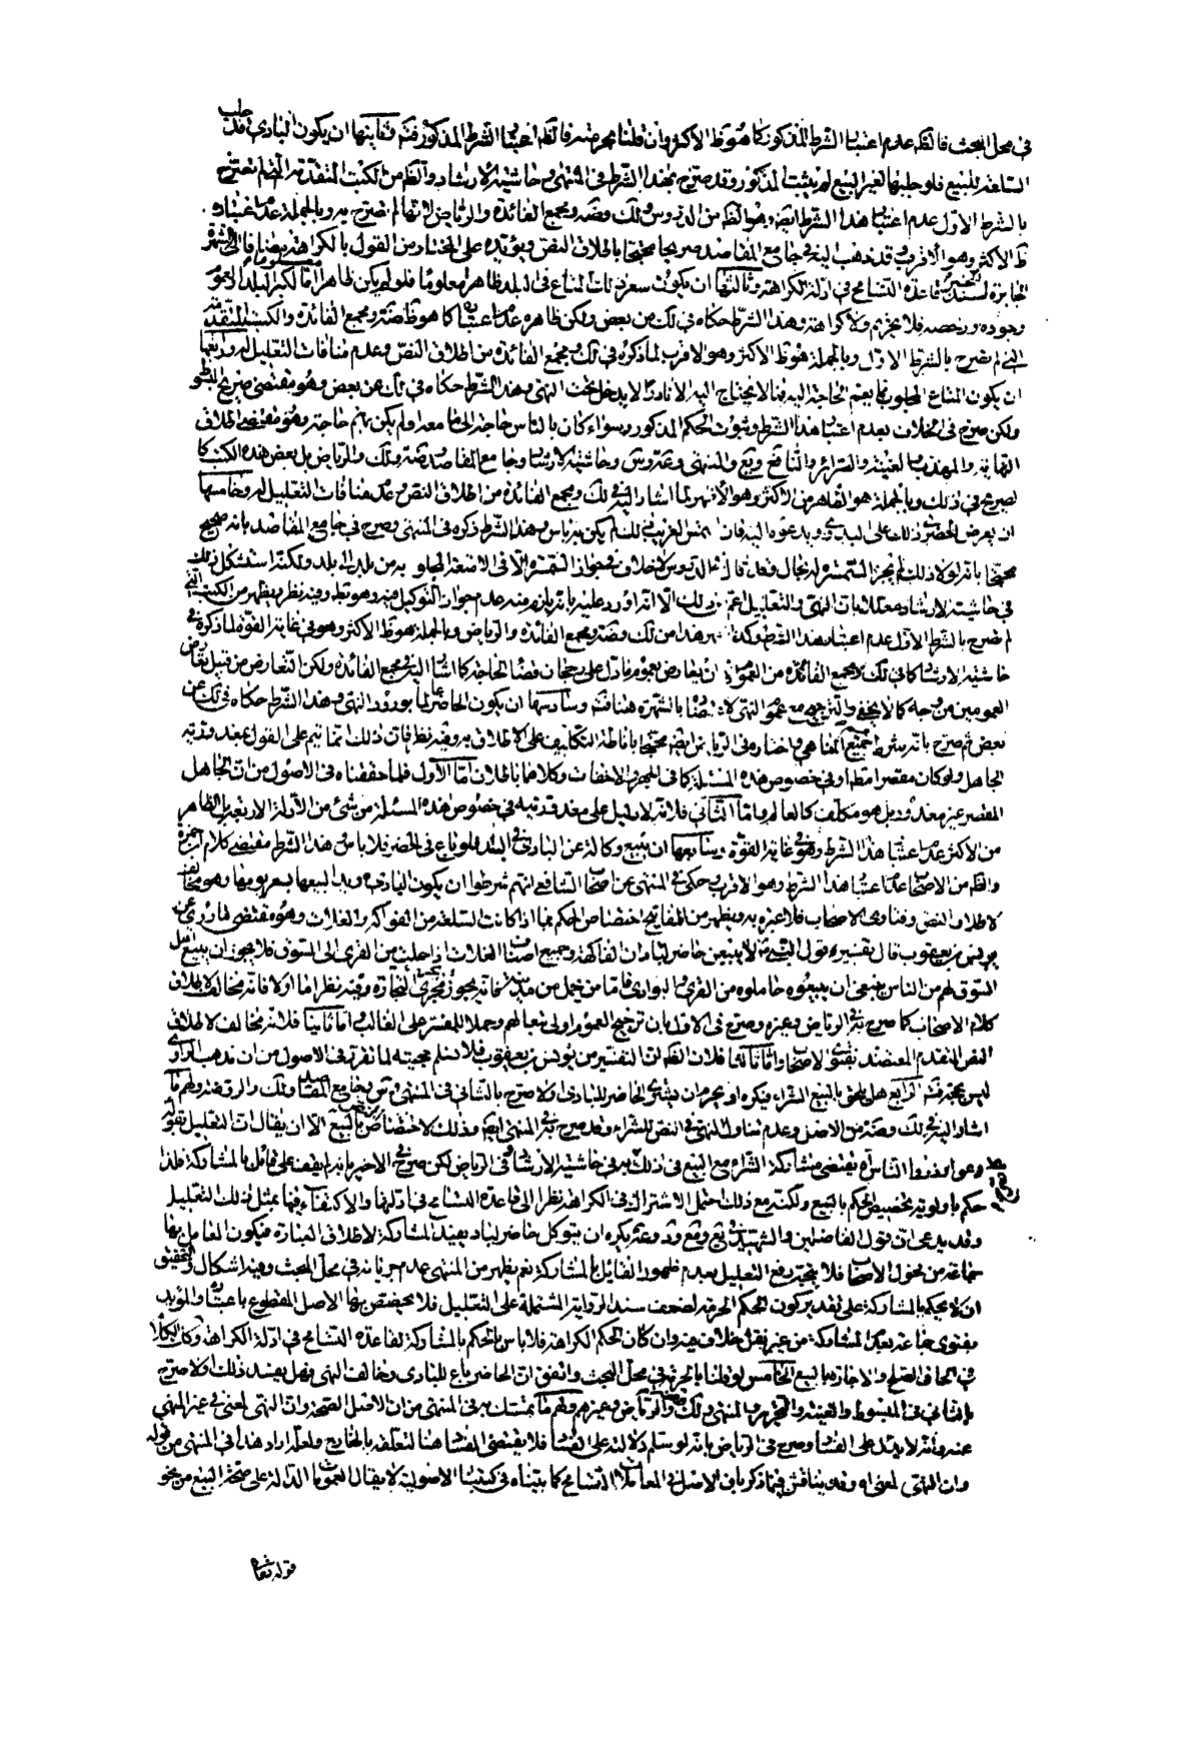 في محل البحث فالظ عدم اعتبار الشرط المذكور كما هو ظ الأكثر وان قلنا بحرمته فالظ اعتبار الشرط المذكور فت وثانيها ان يكون البادي قد جلب
السلعة للبيع فلو جلبها لغير البيع لم يثبت المذكور وقد صرح بهذا الشرط في المنتهى وحاشية الارشاد والظ من الكتب المتقدمة التى لم تصرح
بالشرط الاول عدم اعتبار هذا الشرط ايضا وهو الظ من الدروس ولك وضه ومجمع الفائدة والرياض لانها لم تصرح به وبالجملة عدم اعتباره
ظ الاكثر وهو الاقرب وقد ذهب اليه في جامع المقاصد صريحا محتجا باطلاق النص ويؤيده على المختار من القول بالكراهة
قاعدة التسامح في ادلة الكراهة وثالثها ان يكون سعر ذلك المتاع في البلد ظاهرا معلوما فلو لم يكن ظاهرا اما لكبر البلد او لعموم
وجوده ورخصه فلا تحريم ولا كراهة وهذا الشرط حكاه في لك عن بعض ولكن ظاهره عدم اعتباره كما هو ظ ضه ومجمع الفائدة والكتب المتقدمة
التي لم تصرح بالشرط الاول وبالجملة هو ظ الاكثر وهو الاقرب لما ذكره في لك ومجمع الفائدة من اطلاق النص وعدم منافات التعليل له ورابعها
ان يكون المتاع المجلوب مما يعم الحاجة اليه فما لا يحتاج اليه الا نادرا لا يدخل تحت النهى وهذا الشرط حكاه في لك عن بعض وهو مقتضى صريح
ولكن صرح في بعدم اعتبار هذا الشرط وثبوت الحكم المذكور سواء كان بالناس حاجة الى ما معه او لم يكن بهم حاجة وهو مقتضى اطلاق
النهاية والمهذب والغنية والسرائر والنافع ويع والمنتهى وعد وس وحاشية الارشاد وجامع المقاصد وضه ولك والرياض بل بعض هذه الكتب كا
لصريح في ذلك وبالجملة هو الظاهر من الاكثر وهو الاظهر لما اشار اليه في لك ومجمع الفائدة من اطلاق النص وعدم منافات التعليل له وخامسها
ان يعرض الحضري ذلك على البدوي ويدعوه اليه فان التمس الغريب ذلك لم يكن به باس وهذا الشرط ذكره في المنتهى وصرح في جامع المقاصد بانه صحيح
محتجا بانه لولا ذلك لم يجز السمسرة بحال وقد قال في الدروس لا خلاف في جواز السمسرة الا في الامتعة المجلوبة من بلد الى بلد ولكنه استشكل ذلك
في حاشية الارشاد معللا بان النهى والتعليل اعم من ذلك الا انه اورد عليه بانه يلزم منه عدم جواز التوكيل منه وهو وفيه نظر ويظهر من الكتب التي
لم تصرح بالشرط الاول عدم اعتبار هذا الشرط وكذا يظهر هذا من لك وضه ومجمع الفائدة والرياض وبالجملة هو ظ الاكثر وهو في غاية القوة لما ذكره في
حاشية الارشاد كما في لك ومجمع الفائدة من العموم ان يعارض بعموم ما دل على رجحان قضاء الحاجة كما اشار اليه في مجمع الفائدة ولكن التعارض من قبيل تعارض
العمومين من وجه كما لا يخفى والترجيح مع عموم النهى لاعتضاده بالشهرة هنا فت وسادسها ان يكون الحاضر عالما بورود النهى وهذا الشرط حكاه في لك عن
بعض ثم صرح بانه شرط يعم جميع المناهي واختاره في الرياض ايضا محتجا باناطة التكليف على الاطلاق به وفيه نظر فان ذلك انما يتم على القول بمعذورية
الجاهل ولو كان مقصرا مطلقا او في خصوص هذه المسئلة كما في الجهر والاخفات وكلاهما باطلان اما الاول فلما حققناه في الاصول من ان الجاهل
المقصر غير معذور بل هو مكلف كالعالم واما الثاني فلانه لا دليل على معذوريته في خصوص هذه المسئلة من شئ من الادلة الاربعة بل الظاهر
من الاكثر عدم اعتبار هذا الشرط وهو في غاية القوة وسابعها ان يبيع وكالة عن البادي في البلد فلو باع في الحضر فلا باس وهذا الشرط مقتضى كلام
والظ من الاصحاب عدم اعتبار هذا الشرط وهو الاقرب وحكى في المنتهى عن اصحاب الشافعي انهم شرطوا ان يكون البادي يريد بيعها بسعر يومها وهو مخالف
لاطلاق النص وفتاوى الاصحاب فلا عبرة به ويظهر من المفاتيح اختصاص الحكم بما اذا كانت السلعة من الفواكه والغلات وهو مقتضى ما روى عن
يونس بن يعقوب قال تفسير قول النبي ص لا يبيعن حاضر لباد ان الفاكهة وجميع اصناف الغلات اذا حملت من القرى الى السوق فلا يجوز ان يبيع اهل
السوق لهم من الناس ينبغى ان يبيعوه حاملوه من القرى والبوادى فاما من يحمل من مدينة فانه يجوز ويجري مجرى التجارة وفيه نظر اما اولا فانه مخالف لاطلاق
كلام الاصحاب كما صرح به في الرياض وغيره وصرح في الاول بان ترجيح العموم اولى تبعا لهم وحملا للمفسر على الغالب واما ثانيا فلانه مخالف لاطلاق
النص المتقدم المعتضد بفتوى الاصحاب واما ثالثا فلان الظ ان التفسير من يونس بن يعقوب فلا نسلم حجيته لما تقرر في الاصول من ان مذهب الراوى
ليس بحجة فت الرابع هل يلحق بالبيع الشراء فيكره او يحرم ان يشترى الحاضر للبادي او لا صرح بالثاني في المنتهى وس وجامع المقاصد ولك والروضة ولهم ما
اشار اليه في لك وضه من الاصل وعدم تناول النهى في النص للشراء وقد صرح به في المنتهى ايضا وذلك لاختصاص النص بالبيع الا ان يقال ان التعليل بقوله
دعوا الناس يقتضى مشاركة الشراء مع البيع في ذلك به في حاشية الارشاد وفي الرياض لكن صرح في الاخير بانه لم يقف على قائل بالمشاركة فلذا
حكم باولوية تخصيص الحكم بالبيع ولكنه مع ذلك احتمل الاشتراك في الكراهة نظرا الى قاعدة التسامح في ادلتها والاكتفاء فيها بمثل ذلك التعليل
وقد يدعى ان قول الفاضلين والشهيد في يع وقع ود وعد يكره ان يتوكل حاضر لباد يفيد المشاركة لاطلاق العبارة فيكون القائل بها
جماعة من فحول الاصحاب فلا يتجه رفع التعليل بعدم ظهور القائل بالمشاركة نعم يظهر من المنتهى عدم جريانه في محل البحث وفيه اشكال والتحقيق
ان لا يحكم بالمشاركة على تقدير كون الحكم الحرمة لضعف سند الرواية المشتملة على التعليل فلا يخصص بها الاصل المقطوع باعتباره والمؤيد
بفتوى جماعة بعدم المشاركة من غير نقل خلاف فيه وان كان الحكم الكراهة فلا باس بالحكم بالمشاركة لقاعدة التسامح في ادلة الكراهة وكذا الكلام
في الحاق الصلح والاجارة بالبيع الخامس لو قلنا بالحرمة في محل البحث واتفق ان الحاضر باع للبادى وخالف النهى فهل يفسد ذلك او لا صرح
بالثاني في المبسوط والغنية والتحرير والمنتهى ولك والرياض وغيرهم ولهم ما تمسك به في المنتهى من ان الاصل الصحة وان النهى لمعنى في غير المنهى
عنه وانه لا يدل على الفساد وصرح في الرياض بانه لو سلم دلالته على الفساد فلا يقتضى الفساد هنا لتعلقه بالخارج ولعله اراد هذا في المنتهى من قوله
وان النهى لمعنى اه وقد يناقش فيما ذكر بان الاصل في المعاملات الفساد كما بيناه في كتبنا الاصولية لا يقال العمومات الدالة على صحة البيع من نحو
قوله تعالى